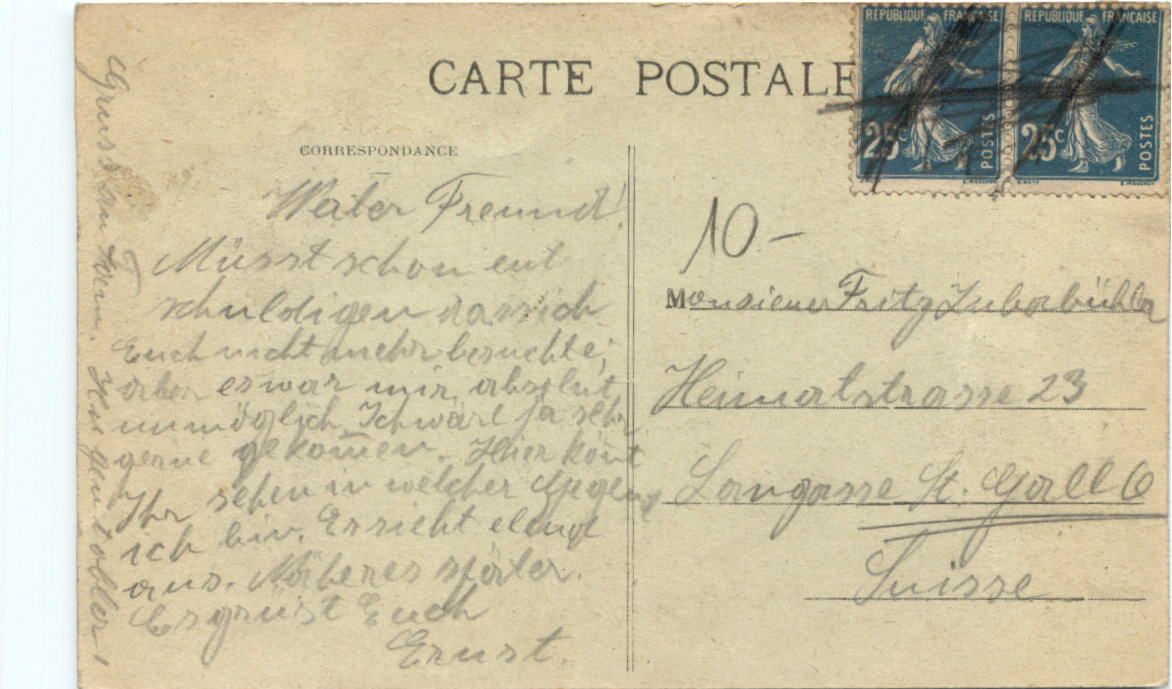 CARTE POSTALE
REPUBLIQUE FRANÇAISE
25c
POSTES
REPUBLIQUE FRANÇAISE
25c
POSTES
CORRESPONDANCE
Werter Freund!
Müsst schon ent
schuldigen dass ich
Euch nicht mehr besuchte,
aber es war mir absolut
unmöglich. Ich wäre ja sehr
gerne gekom̄en. Hier könt
Ihr sehen in welcher Gegend
ich bin. Es sieht elend
aus. Näheres später.
Es grüsst Euch
Ernst.
Gruss an
10-
Monsieur Fritz Zuberbühler
Heimatstrasse 23
Langasse St. Gall 6
Suisse